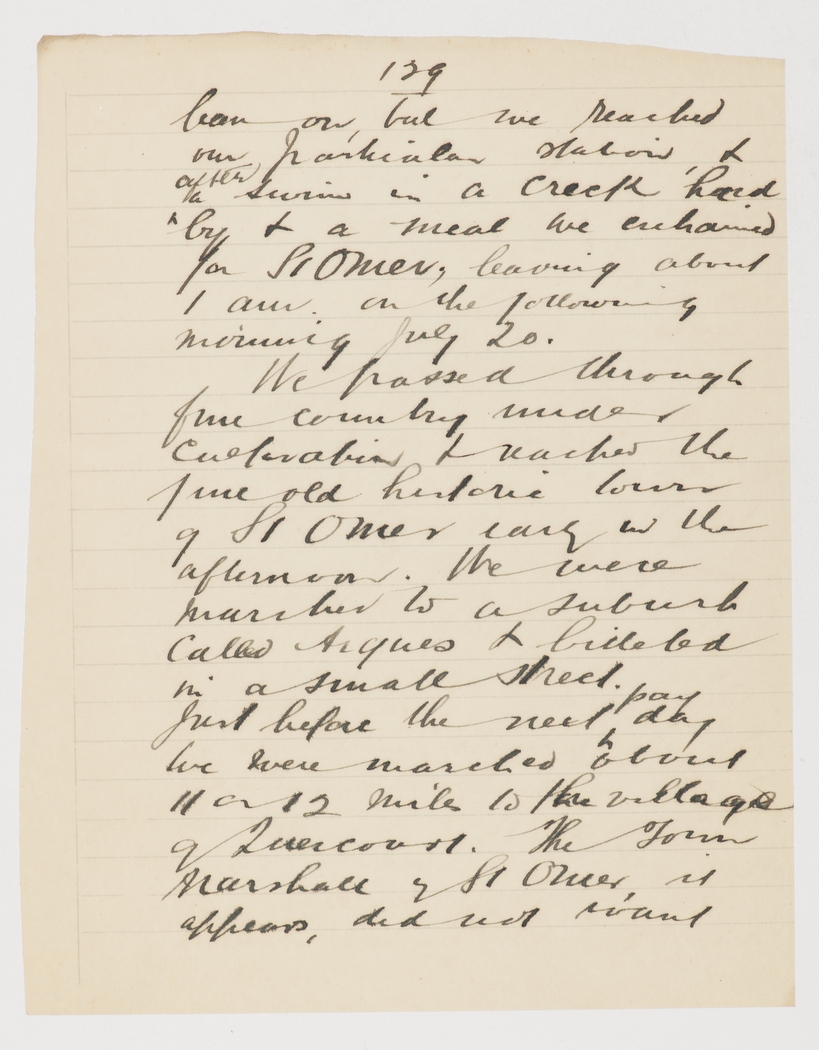 129
been on, but we reached
our particular station, &
after
a swim in a creek hard
by & a meal we entrained
for St Omer, leaving about
1 am. on the following
morning July 20.
We passed through
fine country under
cultivation & reached the
fine old historic town
of St Omer early in the
afternoon. We were
marched to a suburb
called Arques & billeted
in a small street.
pay
Just before the next day
we were marched about
11 or 12 miles to the village
of Quercourt. The Town
Marshall of St Omer, it
appears, did not want